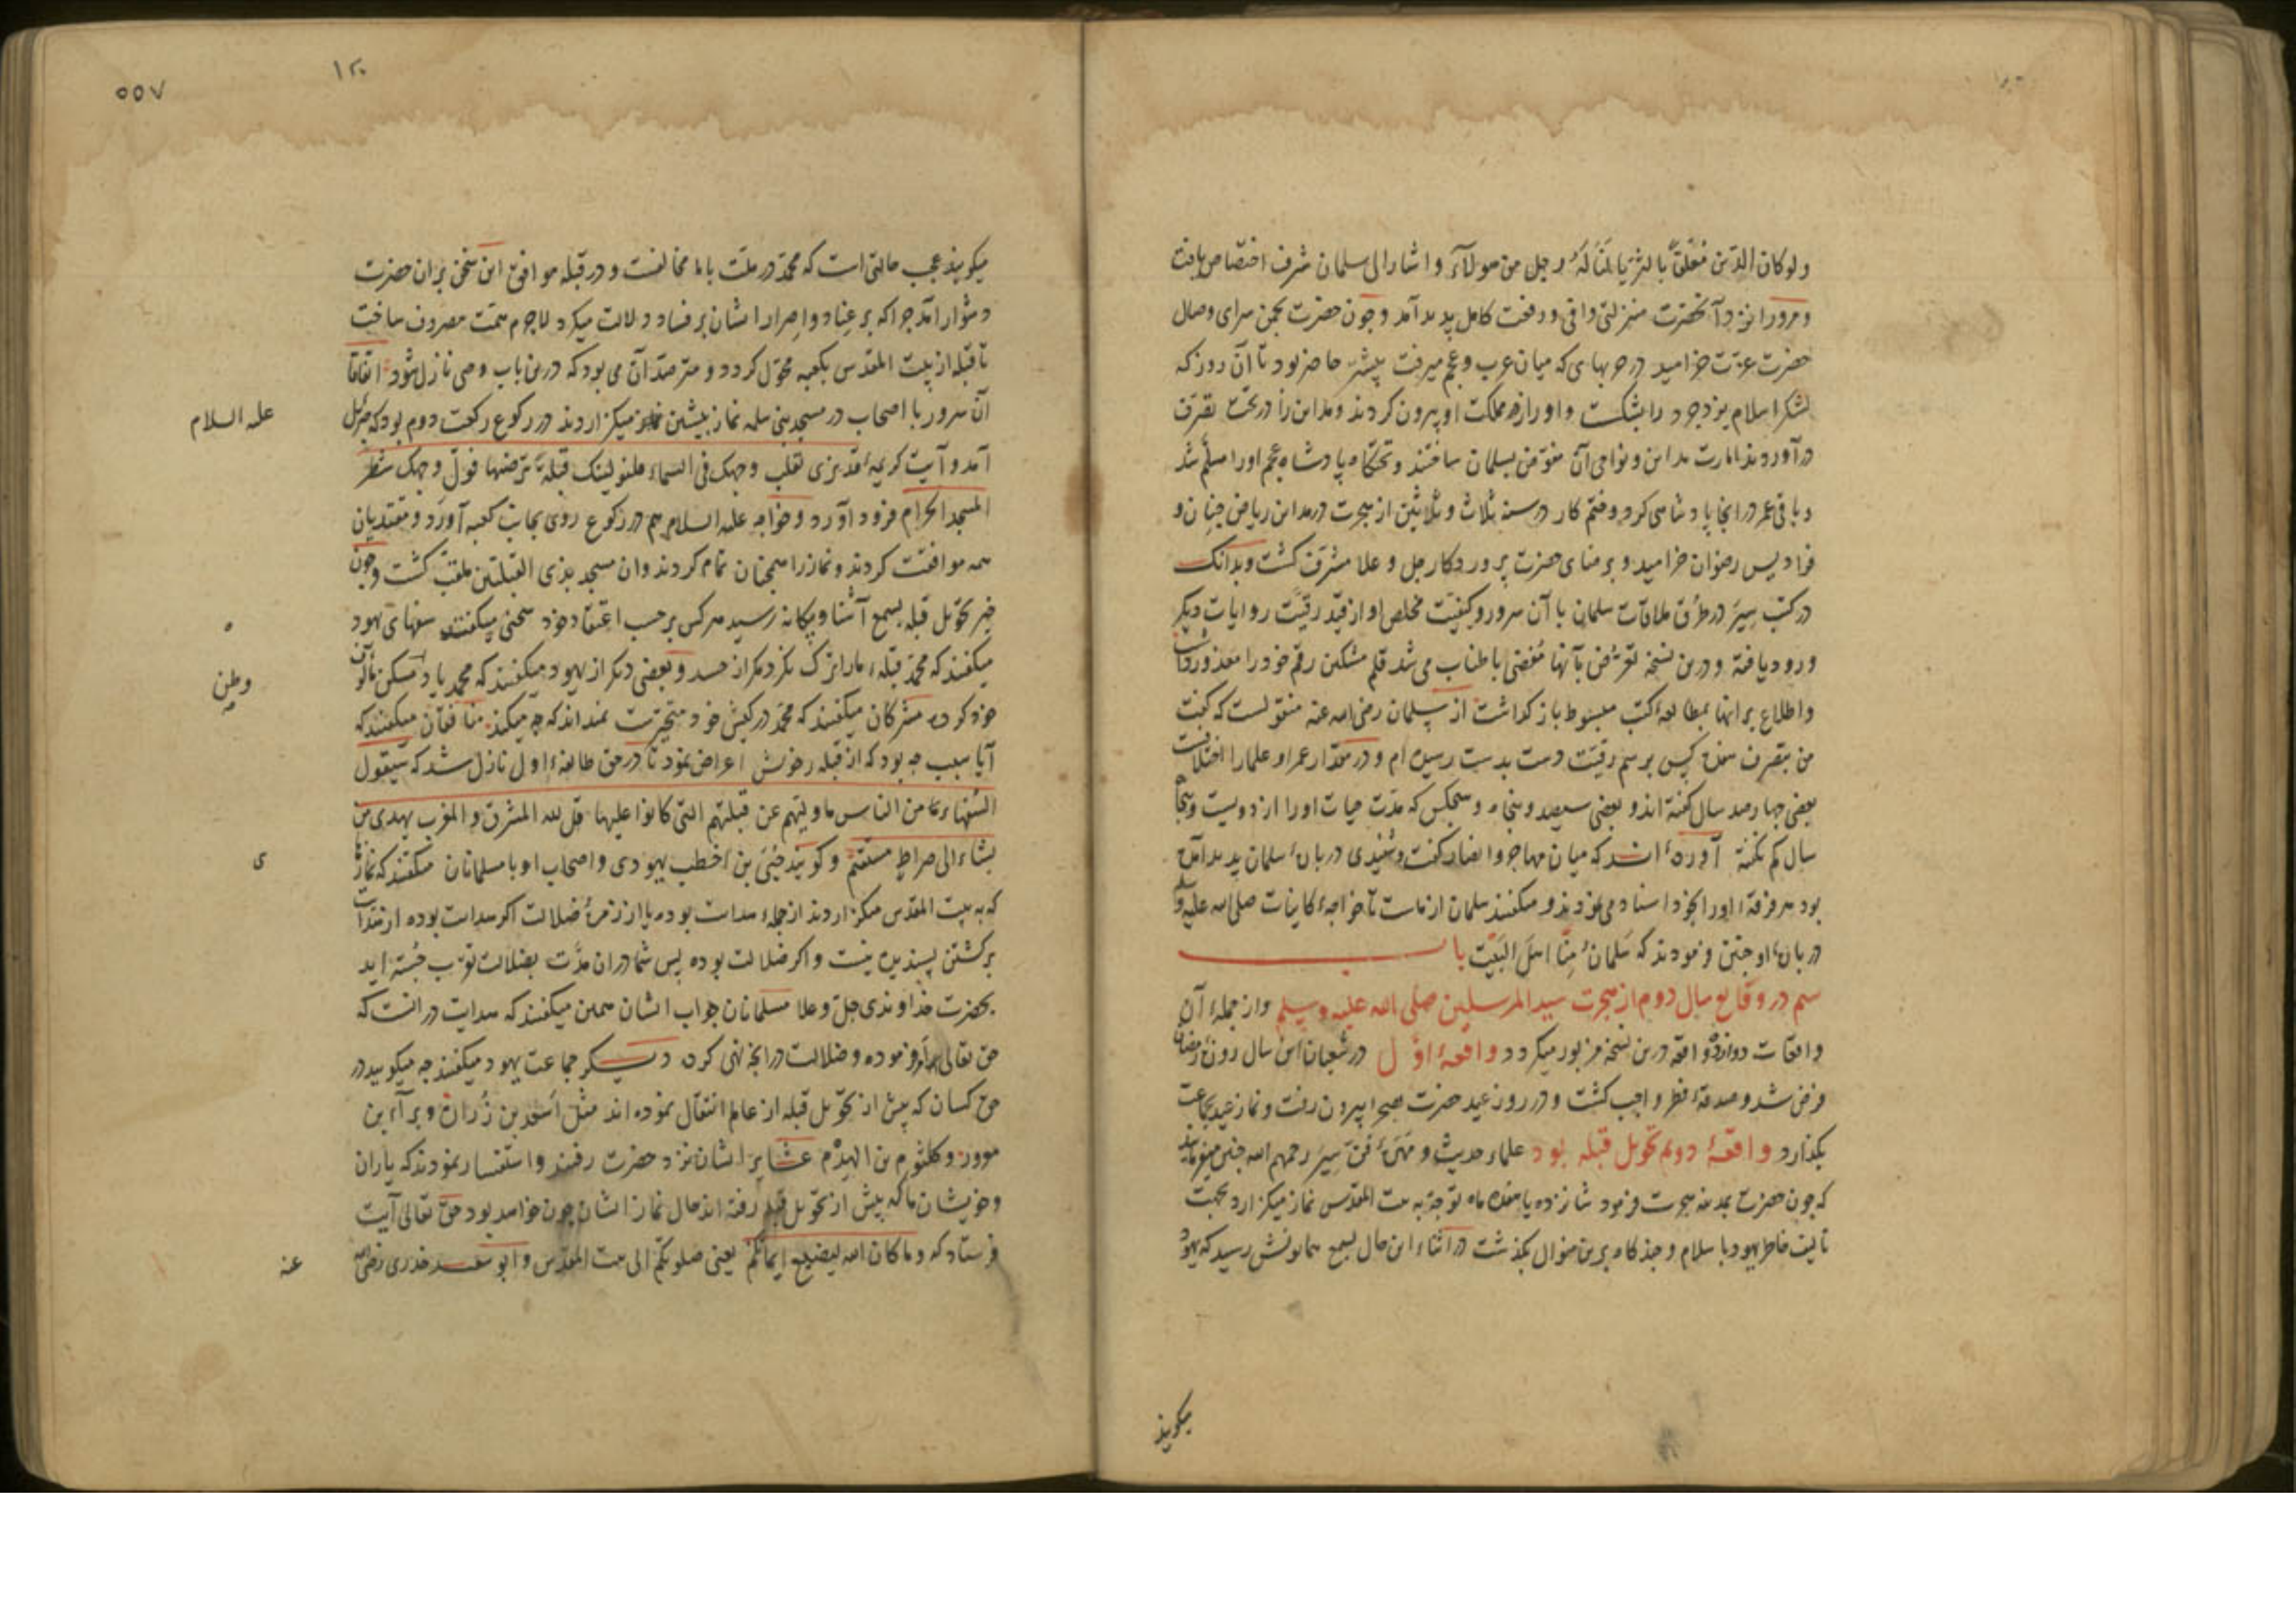 ولو كان الدّين مُعَلَّقاً بالثريا لَنَالَهُ رجل من هولاَء و اشار الى سلمان شرف اختصاص يافت
و مرورا نزد آنحضرت منزلتى وافى و رفعت كامل پديد آمد و چون حضرت بجمن سراى وصال
حضرت عزّت خراميد در حربهاى كه ميان عرب و عجم ميرفت پيشتر حاضر بود تا آن روز كه
لشكر اسلام يزدجرد را بشكست و او را از مملكت او بيرون كردند و مداين را در تحت تصرّف
در آوردند امارت مداين و نواحى آن مفوّض بسلمان ساختند و تختگاه پادشاه عجم او را مسلّم شد
و باقى عمر در انجا پادشاهى كرد و ختم كار در سنهٔ ثلاث و ثلاثين از هجرت در مداين برياض جنان و
فراديس رضوان خراميد و بر مناى حضرت پروردكار جل و علا مشرّف كشت و بدانك
در كتب سِيَر در طُرق ملاقات سلمان با آن سرور و كيفيّت مخلص او از قيد رقيّت روايات ديكر
ورود يافته و درين نسخه تعرّض بآنها مُفضى باطناب مى شد قلم مشكين رقم خود را معذور داشت
و اطلاع بر انها بمطالعهٔ كتب مبسوط باز كذاشت از سلمان رضى الله عنه منقولست كه كفت
من بتصرف هفده كس برسم رقيّت دست بدست رسيده ام و در مقدار عمر او علما را اختلافست
بعضى چهارصد سال كفته اند و بعضى سيصد و پنجاه و هيچكس كه مدّت حيات او را از دويست و پنجاه
سال كم نكفته آورده اند كه ميان مهاجر و انصار كفت و شنيدى دربارهٔ سلمان پديد آمده
بود هر فرقهٔ او را بخود اسناد مى نمودند و ميكفتند سلمان از ماست تا خواجهٔ كاينات صلى الله عليه و سلم
دربارهٔ او چنين فرمودند كه سَلمانُ مِنّا اهلَ البَيْت باب
سيم در وقايع سال دوم از هجرت سيد المرسلين صلى الله عليه و سلم و از جملهٔ آن
واقعات دوازده واقعه درين نسخه مزبور ميكردد واقعهٔ اوّل در شعبان اين سال روزهٔ رمضان
فرض شد و صدقهٔ فطر واجب كشت و در روز عيد حضرت بصحرا بيرون رفت و نماز عيد بجماعت
بكذارد واقعهٔ دويم تحويل قبله بود علماء حديث و مَهَرَهٔ فنّ سِيَر رحمهم الله چنين ميفرمايند
كه چون حضرت بمدينه هجرت فرمود شانزده يا هفده ماه توجه به بيت المقدس نماز ميكزارد بجهت
تاليف خاطر يهود با سلام و چند كاه برين منوال بكذشت در اثناء اين حال بسمع همايونش رسيد كه يهود
ميكويند
۵۵۷
ميكويند عجب حالتى است كه محمّد در ملّت با ما مخالفت و در قبله موافق اين سخن بر ان حضرت
دشوار آمد چرا كه بر عِناد و اِصرار ايشان بر فساد دلالت ميكرد لاجرم همّت مصروف ساخت
تا قبله از بيت المقدس بكعبه محوّل كردد و مترصّد آن مى بود كه درين باب وحى نازل شود اتفاقا
آن سرور با اصحاب در مسجد بنى سلمه نماز پيشين ميكزاردند در ركوع ركعت دوم بود كه جبرئيل
عليه السلام
آمد و آيت كريمهٔ قد نرى تقلب وجهك فى السماء فلنولينك قبلةً ترضيها فولّ وجهك شطر
المسجد الحرام فرود آورد و خواجه عليه السلام هم در ركوع روى بجانب كعبه آورد و مقتديان
همه موافقت كردند و نماز را همچنان تمام كردند و ان مسجد بذى القبلتين ملقب كشت و چون
خبر تحويل قبله بسمع آشنا و بيكانه رسيد هر كس بر حسب اعتقاد خود سخنى ميكفتند سفهاى يهود
ميكفتند كه محمّد قبلهٔ ما را ترك نكرد مكر از حسد و بعضى ديكر از يهود ميكفتند كه محمد ياد مسكن مألوف
وطن
خود كرده مشركان ميكفتند كه محمّد در كيش خود متحيّرست نميداند كه چه ميكند منافقان ميكفتند كه
آيا سبب چه بود كه از قبله خويش اعراض نمود تا در حق طائفهٔ اول نازل شد كه سيقول
السفهاء من الناس ما وليهم عن قبلتهم التى كانوا عليها قل لله المشرق و المغرب يهدى من
يشاء الى صراطٍ مستقيم و كويند حُيَىّ بن اخطب يهودى و اصحاب او با مسلمانان ميكفتند كه نمازى
ى
كه به بيت المقدس ميكزارديد از جملهٔ هدايت بوده يا از زمرهٔ ضلالت اكر هدايت بوده از هدايت
بركشتن پسنديده نيست و اكر ضلالت بوده پس شما در ان مدّت بضلالت تقرّب جسته ايد
بحضرت خداوندى جلّ و علا مسلمانان جواب ايشان همين ميكفتند كه هدايت در انست كه
حق تعالى بدان امر فرموده و ضلالت در انچه نهى كرده ديكر جماعت يهود ميكفتند چه ميكوييد در
حق كسان كه پيش از تحويل قبله از عالم انتقال نموده اند مثل اَسعد بن زُراره و براء بن
معرور و كلثوم بن الهِدْم عشاير ايشان نزد حضرت رفتند و استفسار نمودند كه ياران
و خويشان ما كه پيش از تحويل قبله رفته اند حال نماز ايشان چون خواهد بود حق تعالى آيت
فرستاد كه و ما كان الله ليضيع ايمانكم يعنى صلوتكم الى بيت المقدس و ابو سعيد خدرى رضى الله
عنه